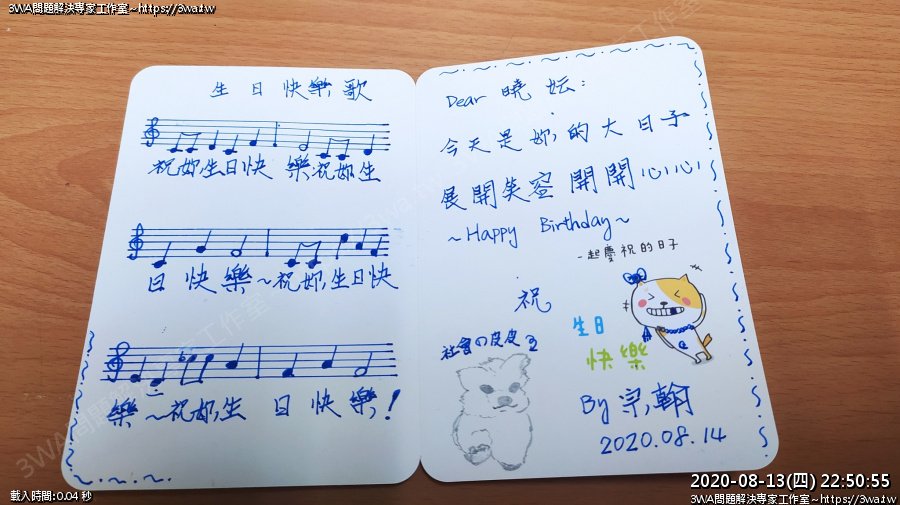 3WA問題解決專家工作室~https://3wa.tw
生日快樂歌
祝妳生日快 樂祝妳生
日 快 樂~祝妳生日快
樂~祝妳生 日 快 樂!
Dear 曉妘:
今天是妳的大日子
展開笑窩 開開心心
~Happy Birthday~
一起慶祝的日子
祝
生日
快樂
社會の皮皮
By 宗翰
2020.08.14
2020-08-13(四) 22:50:55
載入時間:0.04 秒
3WA問題解決專家工作室~https://3wa.tw